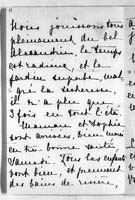 Nous jouissons tous
pleinement du bel
Alexandrin, le temps
est radieux, et le
jardin superbe, mal-
gré la sécheresse,
il n'a plu que
3 fois en tout l'été.
Maman et Sophie
sont arrivées, bien mises
en très bonne santé
Samedi. Tous les enfants
vont bien, et prennent
des bains de rivière,